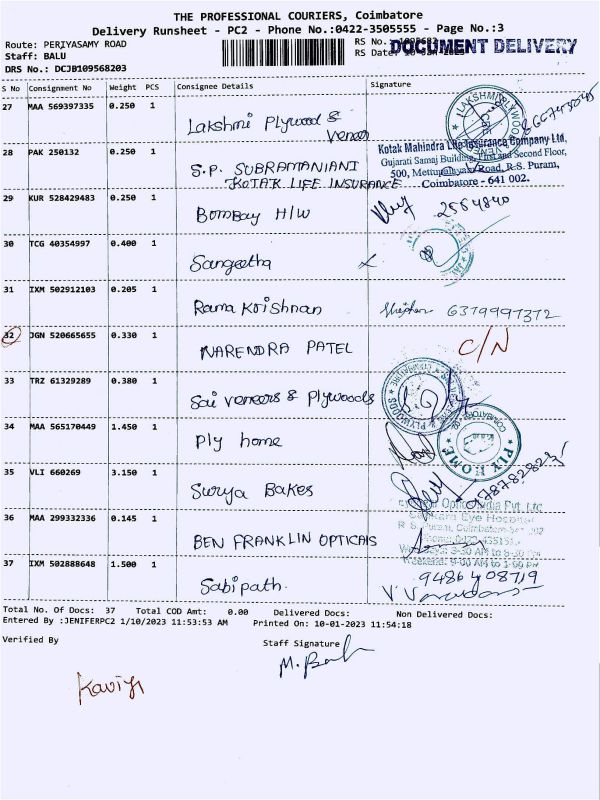 THE PROFESSIONAL COURIERS, Coimbatore
Delivery Runsheet - PC2 - Phone No.:0422-3505555 - Page No.:3
Route: PERIYASAMY ROAD
Staff: BALU
DRS No.: DCJB109568203
RS No.:
DOCUMENT DELIVERY
RS Date:
S No Consignment No Weight PCS Consignee Details Signature
27 MAA 569397335 0.250 1 Lakshmi Plywood & Veneer
28 PAK 250132 0.250 1 S.P. SUBRAMANIANI
KOTAK LIFE INSURANCE
Kotak Mahindra Life Insurance Company Ltd,
Gujarati Samaj Building, First and Second Floor,
500, Mettupalayam Road, R.S. Puram,
Coimbatore - 641 002.
29 KUR 528429483 0.250 1 Bombay H/W 2554840
30 TCG 40354997 0.400 1 Sangeetha
31 IXM 502912103 0.205 1 Rama Krishnan Stephen 6379997372
32 JGN 520665655 0.330 1 NARENDRA PATEL C/N
33 TRZ 61329289 0.380 1 Sai Veneers & Plywoods
34 MAA 565170449 1.450 1 Ply home
PLY HOME
COIMBATORE
35 VLI 660269 3.150 1 Surya Bakes
36 MAA 299332336 0.145 1 BEN FRANKLIN OPTICALS
Eye Hospital
37 IXM 502888648 1.500 1 Sabipath
9486408719
Total No. Of Docs: 37 Total COD Amt: 0.00 Delivered Docs: Non Delivered Docs:
Entered By :JENIFERPC2 1/10/2023 11:53:53 AM Printed On: 10-01-2023 11:54:18
Verified By Staff Signature
Kaviya